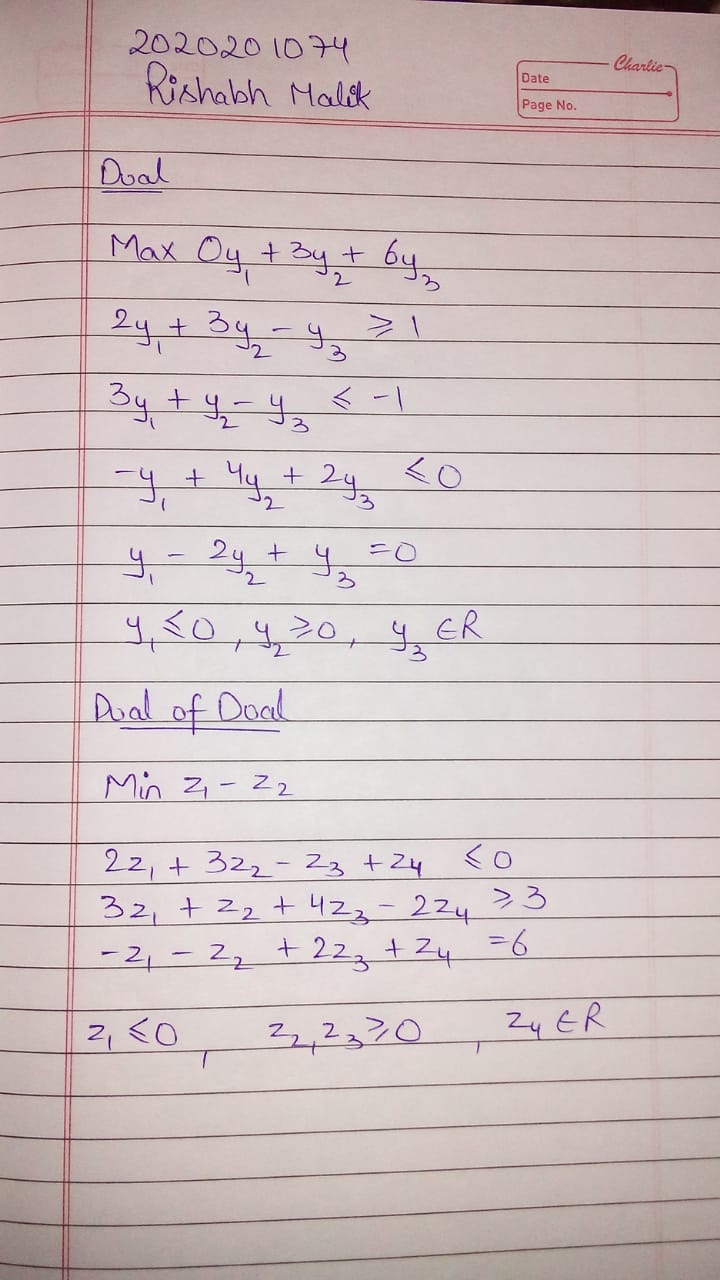 2020201074
Rishabh Malik
Charlie
Date
Page No.
Dual
Max 0y₁ + 3y₂ + 6y₃
2y₁ + 3y₂ - y₃ ⩾ 1
3y₁ + y₂ - y₃ ⩽ -1
-y₁ + 4y₂ + 2y₃ ⩽ 0
y₁ - 2y₂ + y₃ = 0
y₁ ⩽ 0, y₂ ⩾ 0, y₃ ∈ R
Dual of Dual
Min z₁ - z₂
2z₁ + 3z₂ - z₃ + z₄ ⩽ 0
3z₁ + z₂ + 4z₃ - 2z₄ ⩾ 3
-z₁ - z₂ + 2z₃ + z₄ = 6
z₁ ⩽ 0, z₂, z₃ ⩾ 0, z₄ ∈ R